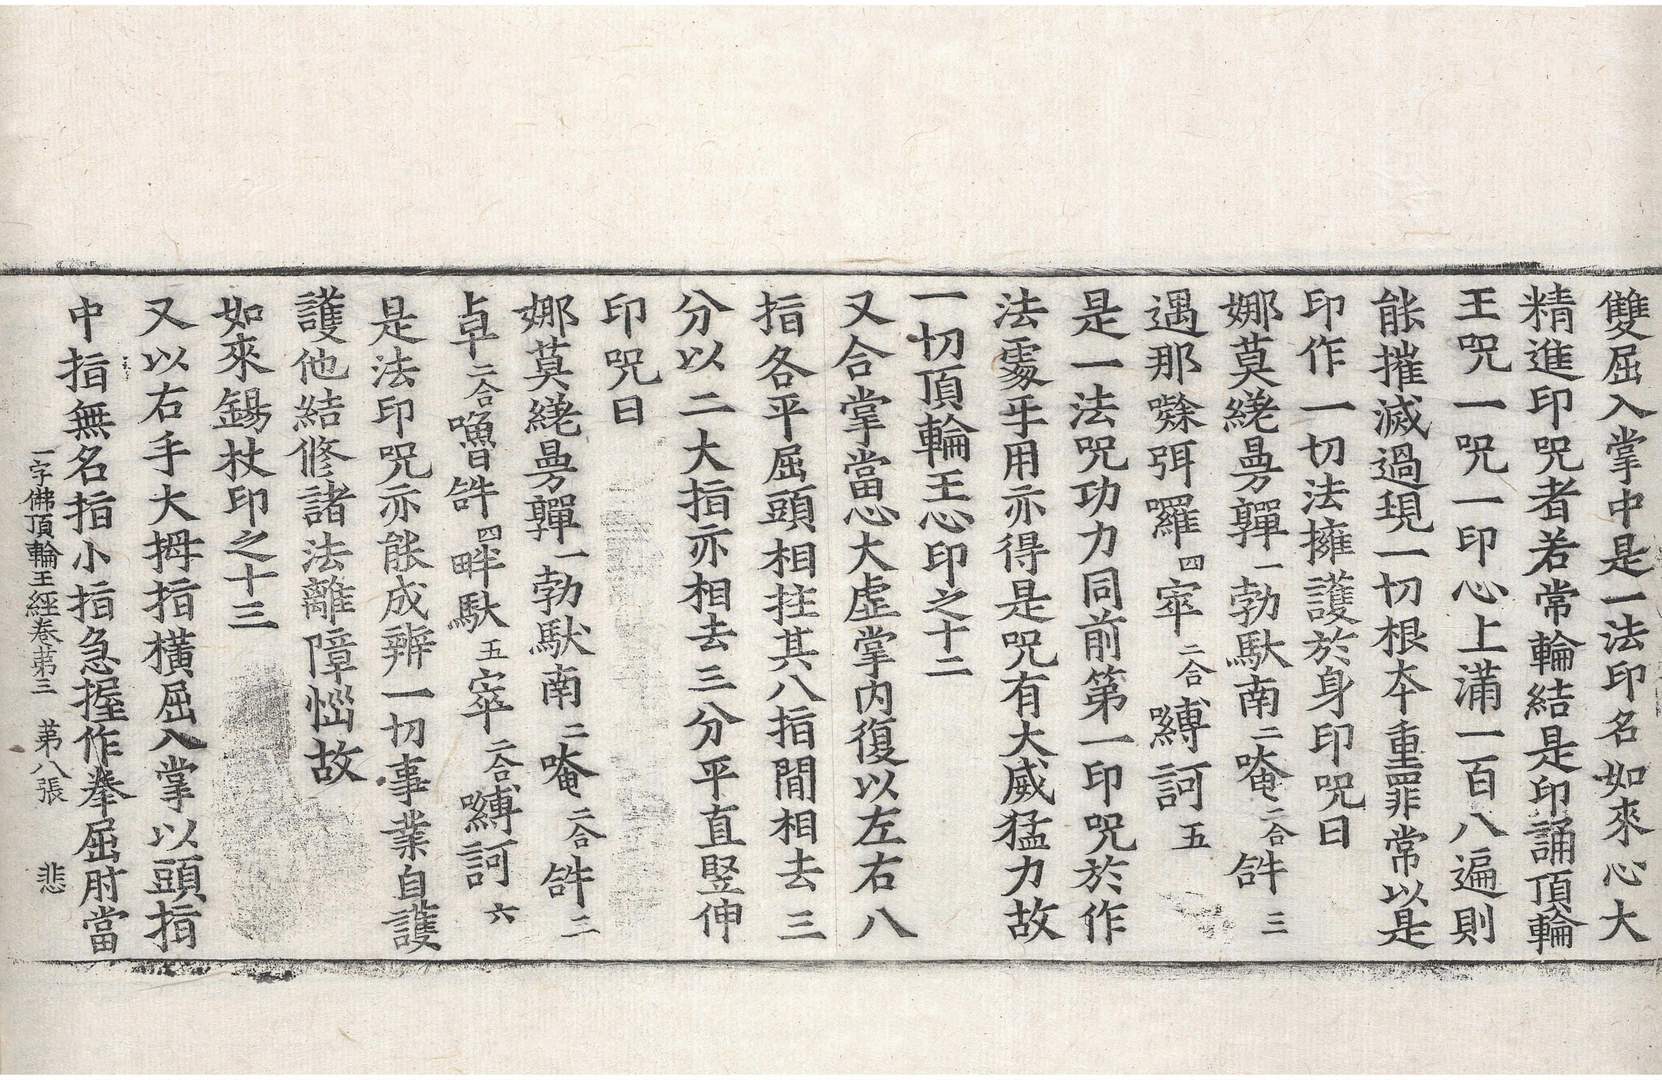 雙屈入掌中是一法印名如來心大
精進印呪者若常輪結是印誦頂輪
王呪一呪一印心上滿一百八遍則
能摧滅過現一切根本重罪常以是
印作一切法擁護於身印呪曰
娜莫繞曼彈一勃馱南二唵二合𤙖三
遏那㘑弭囉四窣二合嚩訶五
是一法呪功力同前第一印呪於作
法處乎用亦得是呪有大威猛力故
一切頂輪王心印之十二
又合掌當心大虛掌內復以左右八
指各平屈頭相拄其八指間相去三
分以二大指亦相去三分平直豎伸
印呪曰
娜莫繞曼彈一勃馱南二唵二合𤙖三
卓二合嚕𤙖四畔馱五窣二合嚩訶六
是法印呪亦能成辨一切事業自護
護他結修諸法離障惱故
如來錫杖印之十三
又以右手大拇指橫屈入掌以頭指
中指無名指小指急握作拳屈肘當
一字佛頂輪王經卷苐三 苐八張 悲